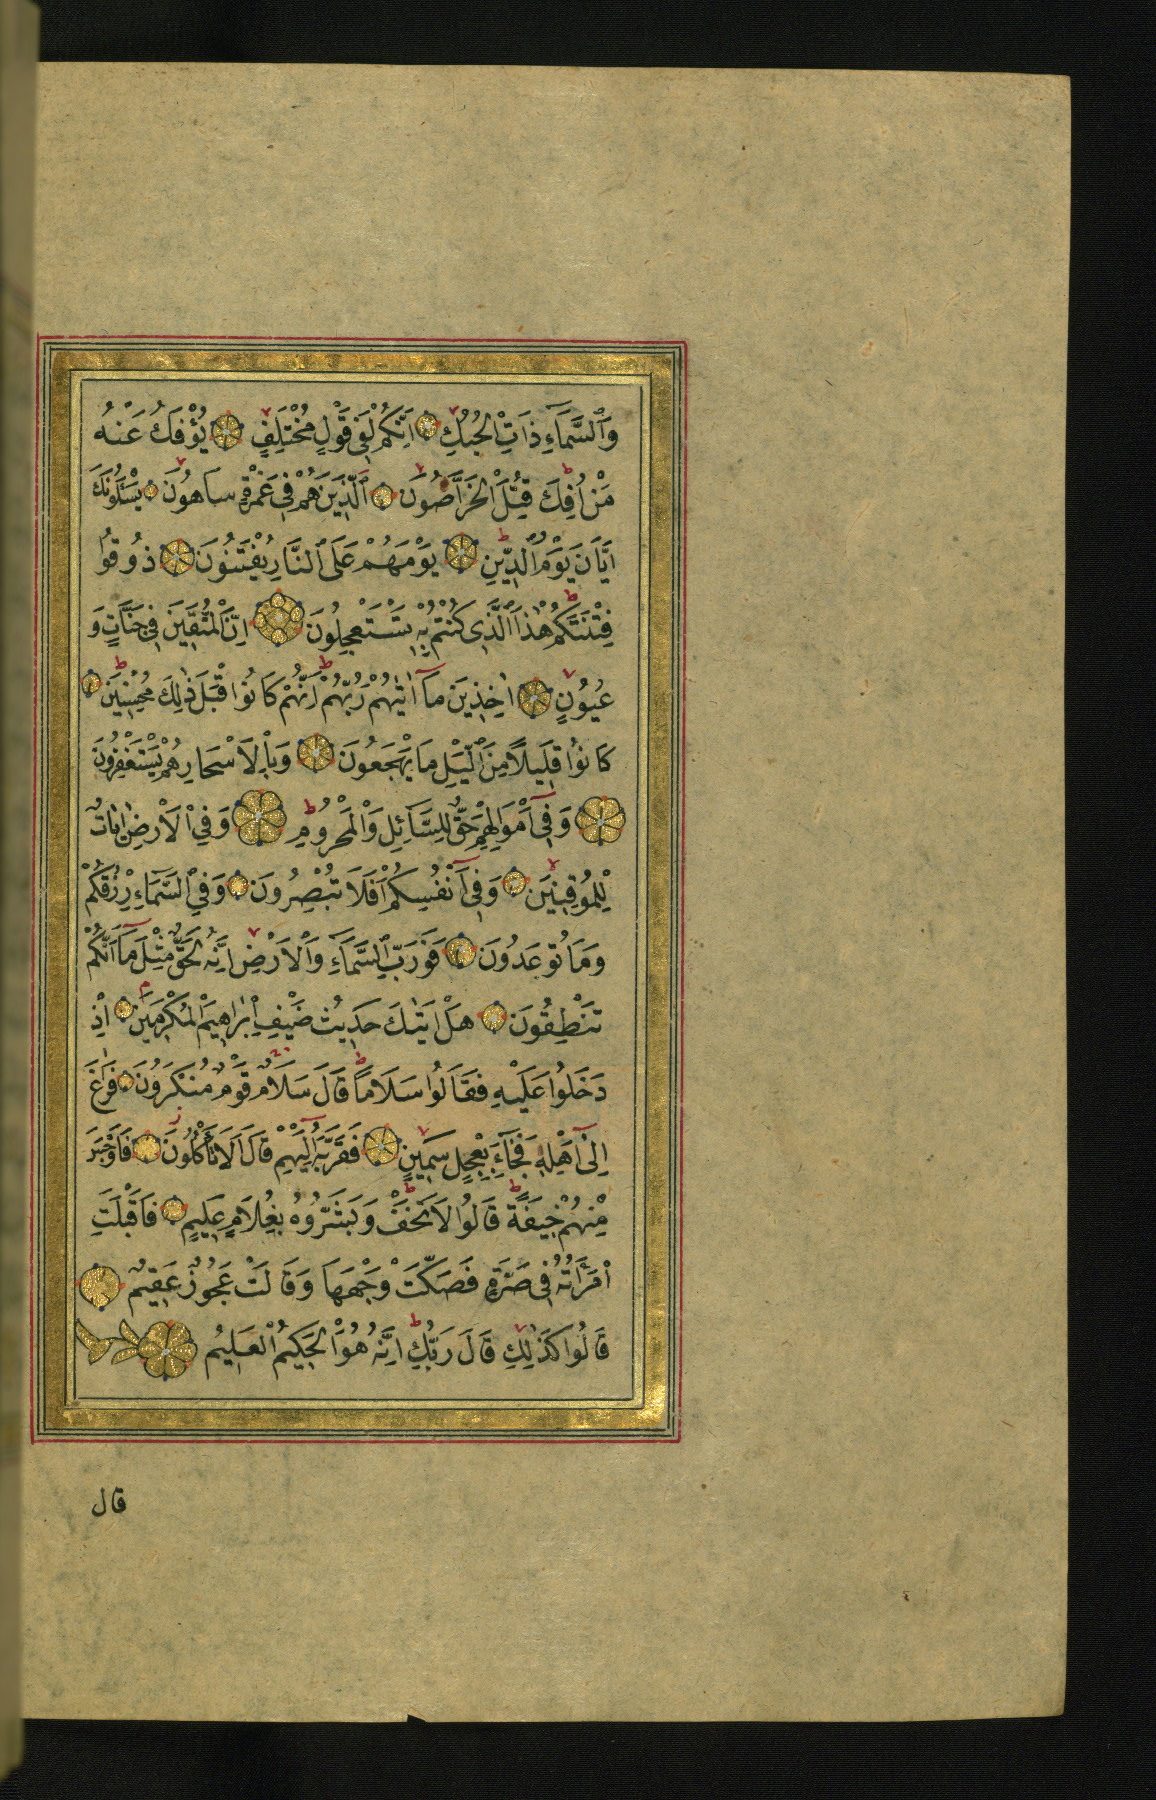 وَٱلسَّمَآءِ ذَاتِ الْحُبُكِ اِنَّكُمْ لَفِى قَوْلٍ مُخْتَلِفٍ يُؤْفَكُ عَنْهُ
مَنْ اُفِكَ قُتِلَ الْخَرَّاصُونَ اَلَّذِينَ هُمْ فِى غَمْرَةٍ سَاهُونَ يَسْئَلُونَكَ
اَيَّانَ يَوْمُ الدِّينِ يَوْمَ هُمْ عَلَى ٱلنَّارِ يُفْتَنُونَ ذُوقُوا
فِتْنَتَكُمْ هٰذَا الَّذِى كُنْتُمْ بِهِ تَسْتَعْجِلُونَ اِنَّ الْمُتَّقِينَ فِى جَنَّاتٍ وَ
عُيُونٍ اٰخِذِينَ مَآ اٰتٰيهُمْ رَبُّهُمْ اِنَّهُمْ كَانُوا قَبْلَ ذٰلِكَ مُحْسِنِينَ
كَانُوا قَلِيلًا مِنَ الَّيْلِ مَا يَهْجَعُونَ وَبِالْاَسْحَارِ هُمْ يَسْتَغْفِرُونَ
وَفِىٓ اَمْوَالِهِمْ حَقٌّ لِلسَّآئِلِ وَالْمَحْرُومِ وَفِي الْاَرْضِ اٰيَاتٌ
لِلْمُوقِنِينَ وَفِىٓ اَنْفُسِكُمْ اَفَلَا تُبْصِرُونَ وَفِي السَّمَآءِ رِزْقُكُمْ
وَمَا تُوعَدُونَ فَوَرَبِّ السَّمَآءِ وَالْاَرْضِ اِنَّهُ لَحَقٌّ مِثْلَ مَآ اَنَّكُمْ
تَنْطِقُونَ هَلْ اَتٰيكَ حَدِيثُ ضَيْفِ اِبْرٰهِيمَ الْمُكْرَمِينَ اِذْ
دَخَلُوا عَلَيْهِ فَقَالُوا سَلَامًا قَالَ سَلَامٌ قَوْمٌ مُنْكَرُونَ فَرَاغَ
اِلٰىٓ اَهْلِهِ فَجَآءَ بِعِجْلٍ سَمِينٍ فَقَرَّبَهُ اِلَيْهِمْ قَالَ اَلَا تَأْكُلُونَ فَاَوْجَسَ
مِنْهُمْ خِيفَةً قَالُوا لَا تَخَفْ وَبَشَّرُوهُ بِغُلَامٍ عَلِيمٍ فَاَقْبَلَتِ
امْرَأَتُهُ فِى صَرَّةٍ فَصَكَّتْ وَجْهَهَا وَقَالَتْ عَجُوزٌ عَقِيمٌ
قَالُوا كَذٰلِكِ قَالَ رَبُّكِ اِنَّهُ هُوَ الْحَكِيمُ الْعَلِيمُ
قال